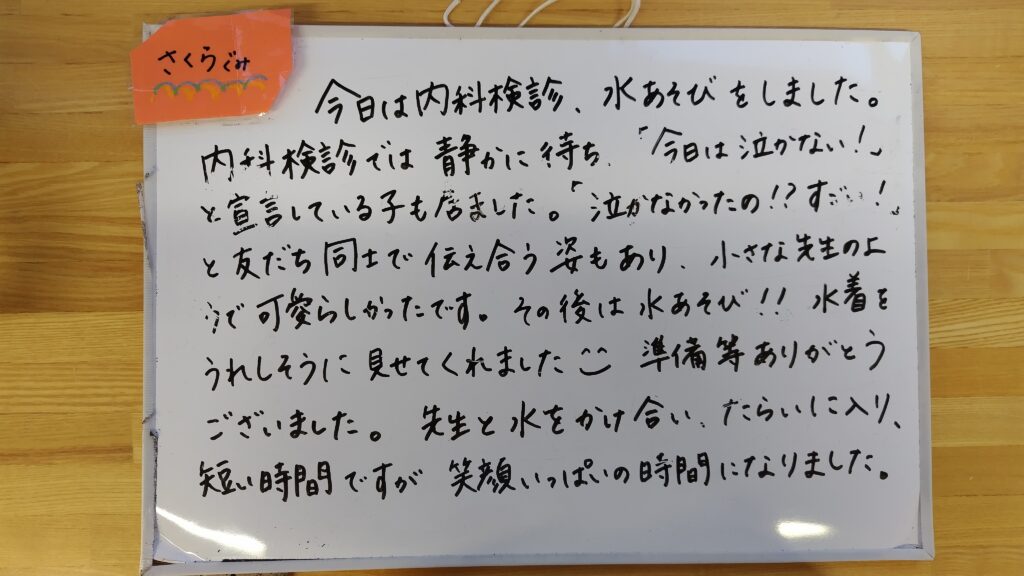 さくらぐみ
今日は内科検診、水あそびをしました。
内科検診では静かに待ち、「今日は泣かない！」
と宣言している子も居ました。「泣かなかったの！？すごい！」
と友だち同士で伝え合う姿もあり、小さな先生のよ
うで可愛らしかったです。その後は水あそび！！水着を
うれしそうに見せてくれました 準備等ありがとう
ございました。先生と水をかけ合い、たらいに入り、
短い時間ですが笑顔いっぱいの時間になりました。